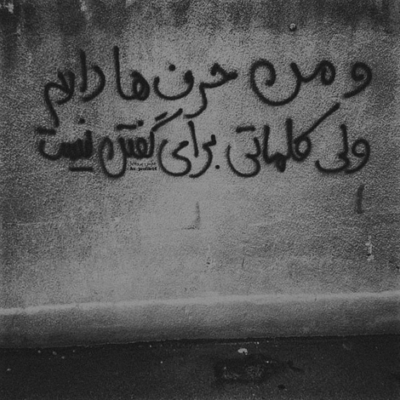 و من حرف ها دارم
ولی کلماتی برای گفتن نیست